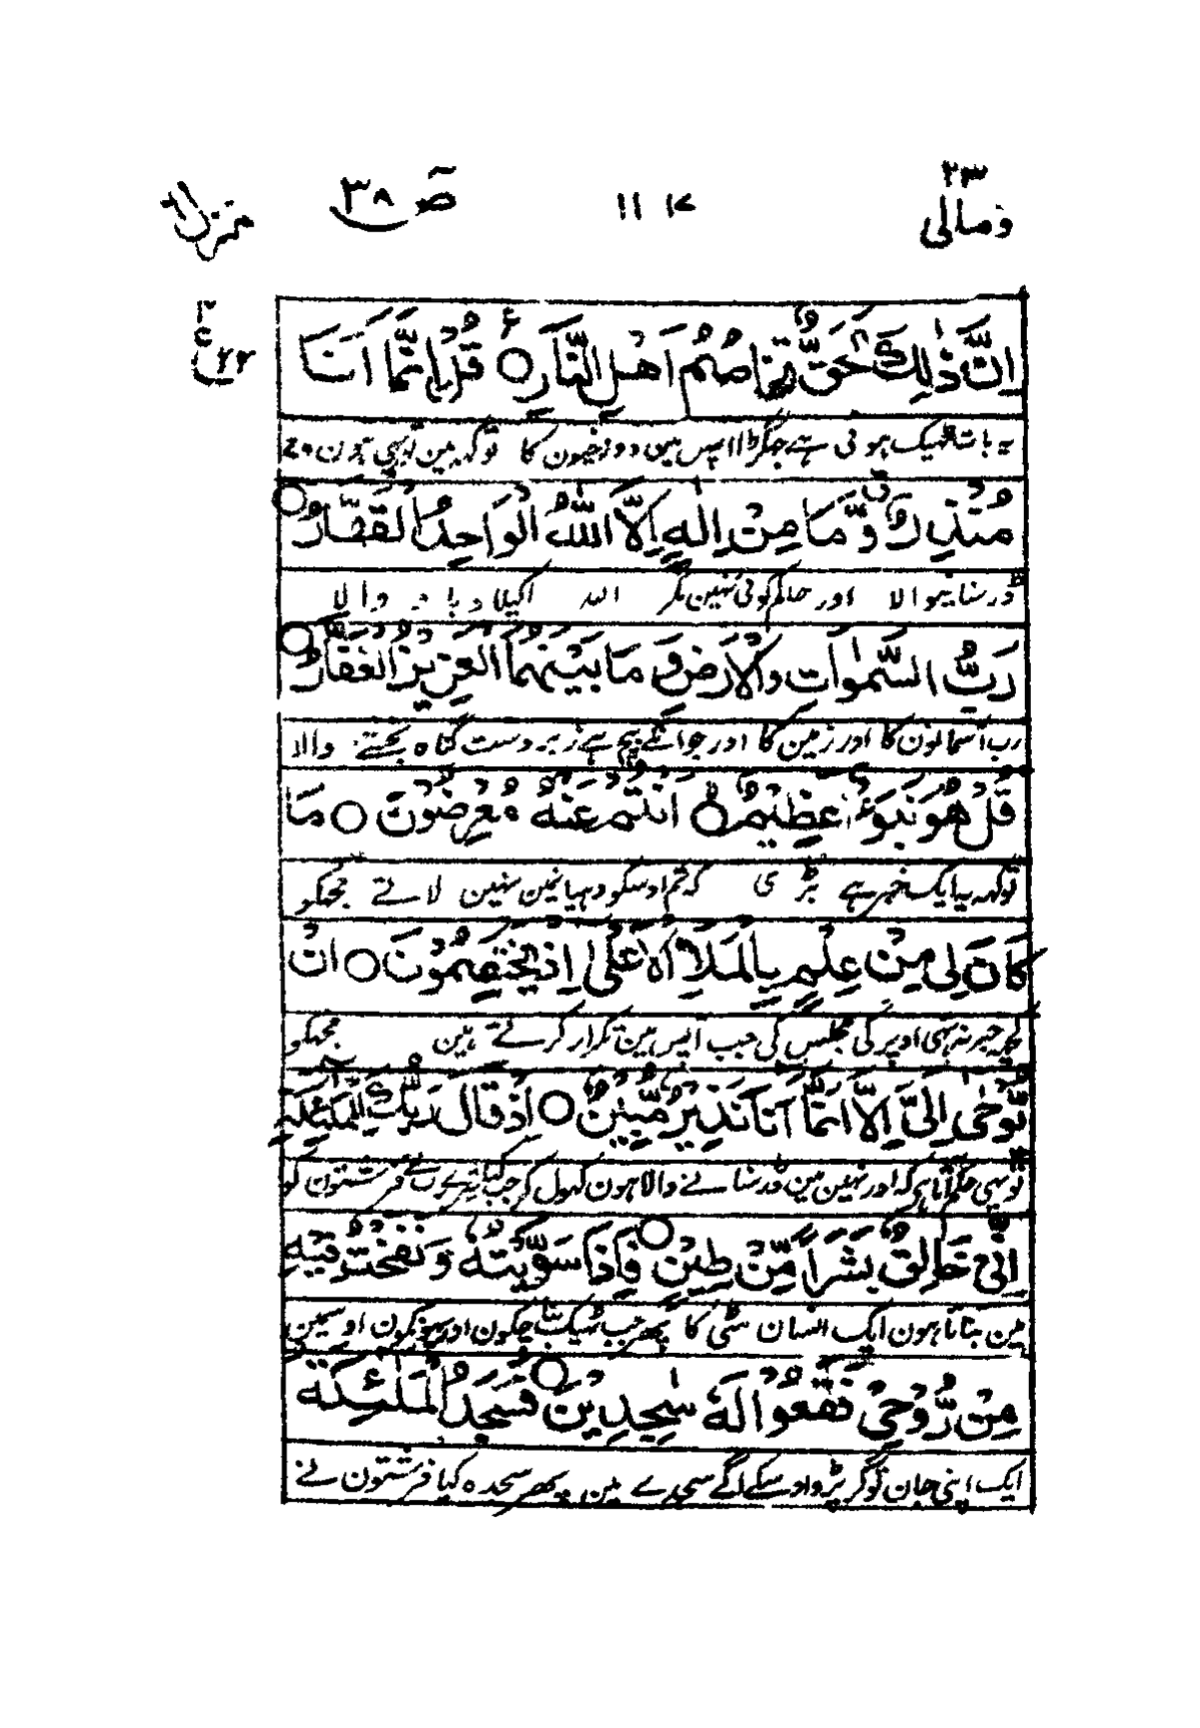 ومالی ٢٣
١١١٧
صٓ ٣٨
منزل
اِنَّ ذٰلِكَ لَحَقٌّ تَخَاصُمُ اَهْلِ النَّارِ ○ قُلْ اِنَّمَآ اَنَا
یہ بات ٹھیک ہونی ہے جھگڑا اپس مین دوزخیون کا تو کہہ مین تو یہی ہون
مُنْذِرٌ وَّمَا مِنْ اِلٰهٍ اِلَّا اللّٰهُ الْوَاحِدُ الْقَهَّارُ ○
ڈر سنانیوالا اور حاکم کوئی نہین مگر اللہ اکیلا دباؤ والا
رَبُّ السَّمٰوٰتِ وَالْاَرْضِ وَمَا بَيْنَهُمَا الْعَزِيْزُ الْغَفَّارُ ○
رب آسمانون کا اور زمین کا اور جو انکے بیچ ہے زبردست گناہ بخشنے والا
قُلْ هُوَ نَبَؤٌا عَظِيْمٌ ○ اَنْتُمْ عَنْهُ مُعْرِضُوْنَ ○ مَا
تو کہہ یہ ایک خبر ہے بڑی کہ تم اوسکو دہیانمین نہین لاتے مجھکو
كَانَ لِيَ مِنْ عِلْمٍ بِالْمَلَاِ الْاَعْلٰى اِذْ يَخْتَصِمُوْنَ ○ اِنْ
کچھ خبر نہ تہی اوپر کی مجلس کی جب آپس مین تکرار کرتے ہین مجھکو
يُّوْحٰى اِلَيَّ اِلَّآ اَنَّمَآ اَنَا نَذِيْرٌ مُّبِيْنٌ ○ اِذْ قَالَ رَبُّكَ لِلْمَلٰٓئِكَةِ
تو یہی حکم آتا ہے کہ اور نہین مین ڈر سنانے والا ہون کہول کر جب کہا تیرے رب نے فرشتون کو
اِنِّيْ خَالِقٌ بَشَرًا مِّنْ طِيْنٍ ○ فَاِذَا سَوَّيْتُهٗ وَنَفَخْتُ فِيْهِ
مین بناتا ہون ایک انسان مٹی کا پھر جب ٹھیک بنا چکون اور پھونکون اوسمین
مِنْ رُّوْحِيْ فَقَعُوْا لَهٗ سٰجِدِيْنَ ○ فَسَجَدَ الْمَلٰٓئِكَةُ
ایک اپنی جان تو گر پڑو اوسکے آگے سجدے مین پھر سجدہ کیا فرشتون نے